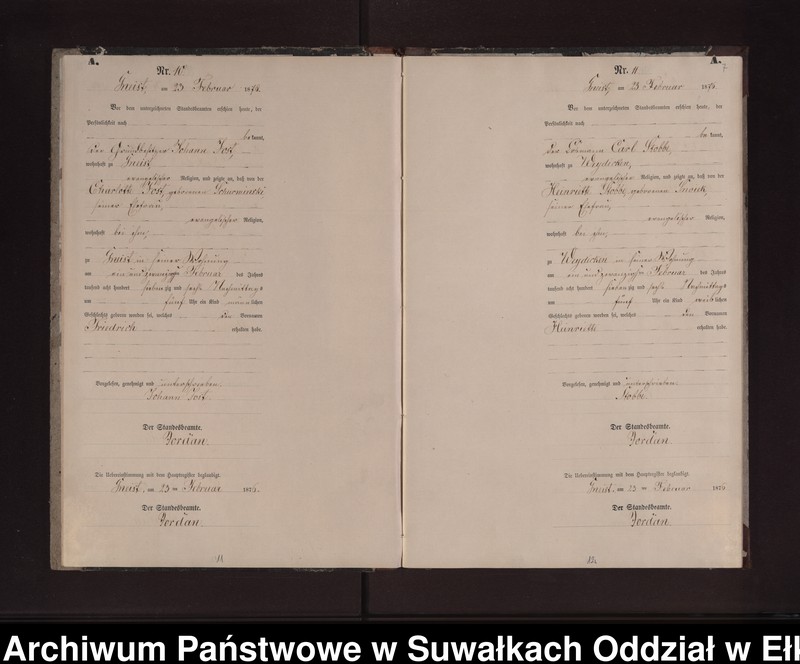 A.
Nr. 10
Gneist, am 23 Februar 1876.
Vor dem unterzeichneten Standesbeamten erschien heute, der
Persönlichkeit nach
bekannt,
der Grundbesitzer Johann
wohnhaft zu Gneist
evangelischer Religion, und zeigte an, daß von der
Charlotte geborenen
seiner Ehefrau,
evangelischer Religion,
wohnhaft bei ihm,
zu Gneist in seiner Wohnung
am ein und zwanzigsten Februar des Jahres
tausend acht hundert siebenzig und sechs Nachmittags
um fünf Uhr ein Kind männlichen
Geschlechts geboren worden sei, welches den Vornamen
Friedrich erhalten habe.
Vorgelesen, genehmigt und unterschrieben
Johann
Der Standesbeamte.
Jordan.
Die Uebereinstimmung mit dem Hauptregister beglaubigt.
Gneist, am 23ten Februar 1876.
Der Standesbeamte.
Jordan.
A.
7
Nr. 11
Gneist, am 23 Februar 1876.
Vor dem unterzeichneten Standesbeamten erschien heute, der
Persönlichkeit nach
bekannt,
der Carl Stobbe,
wohnhaft zu Weydicken,
evangelischer Religion, und zeigte an, daß von der
Heinriette Stobbe, geborenen
seiner Ehefrau,
evangelischer Religion,
wohnhaft bei ihm,
zu Weydicken in seiner Wohnung
am ein und zwanzigsten Februar des Jahres
tausend acht hundert siebenzig und sechs Nachmittags
um fünf Uhr ein Kind weiblichen
Geschlechts geboren worden sei, welches den Vornamen
Heinriette erhalten habe.
Vorgelesen, genehmigt und unterschrieben
Stobbe.
Der Standesbeamte.
Jordan.
Die Uebereinstimmung mit dem Hauptregister beglaubigt.
Gneist, am 23ten Februar 1876
Der Standesbeamte.
Jordan.
Archiwum Państwowe w Suwałkach Oddział w Eł